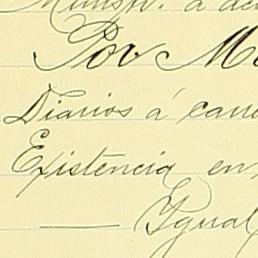 á
Por M
Diarios á can
Existencia en
Ygual